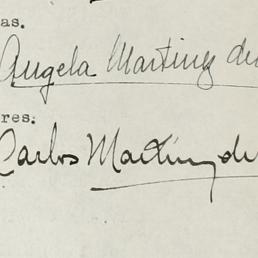 as.
Angela Martinez de
res.
Carlos Martinez de